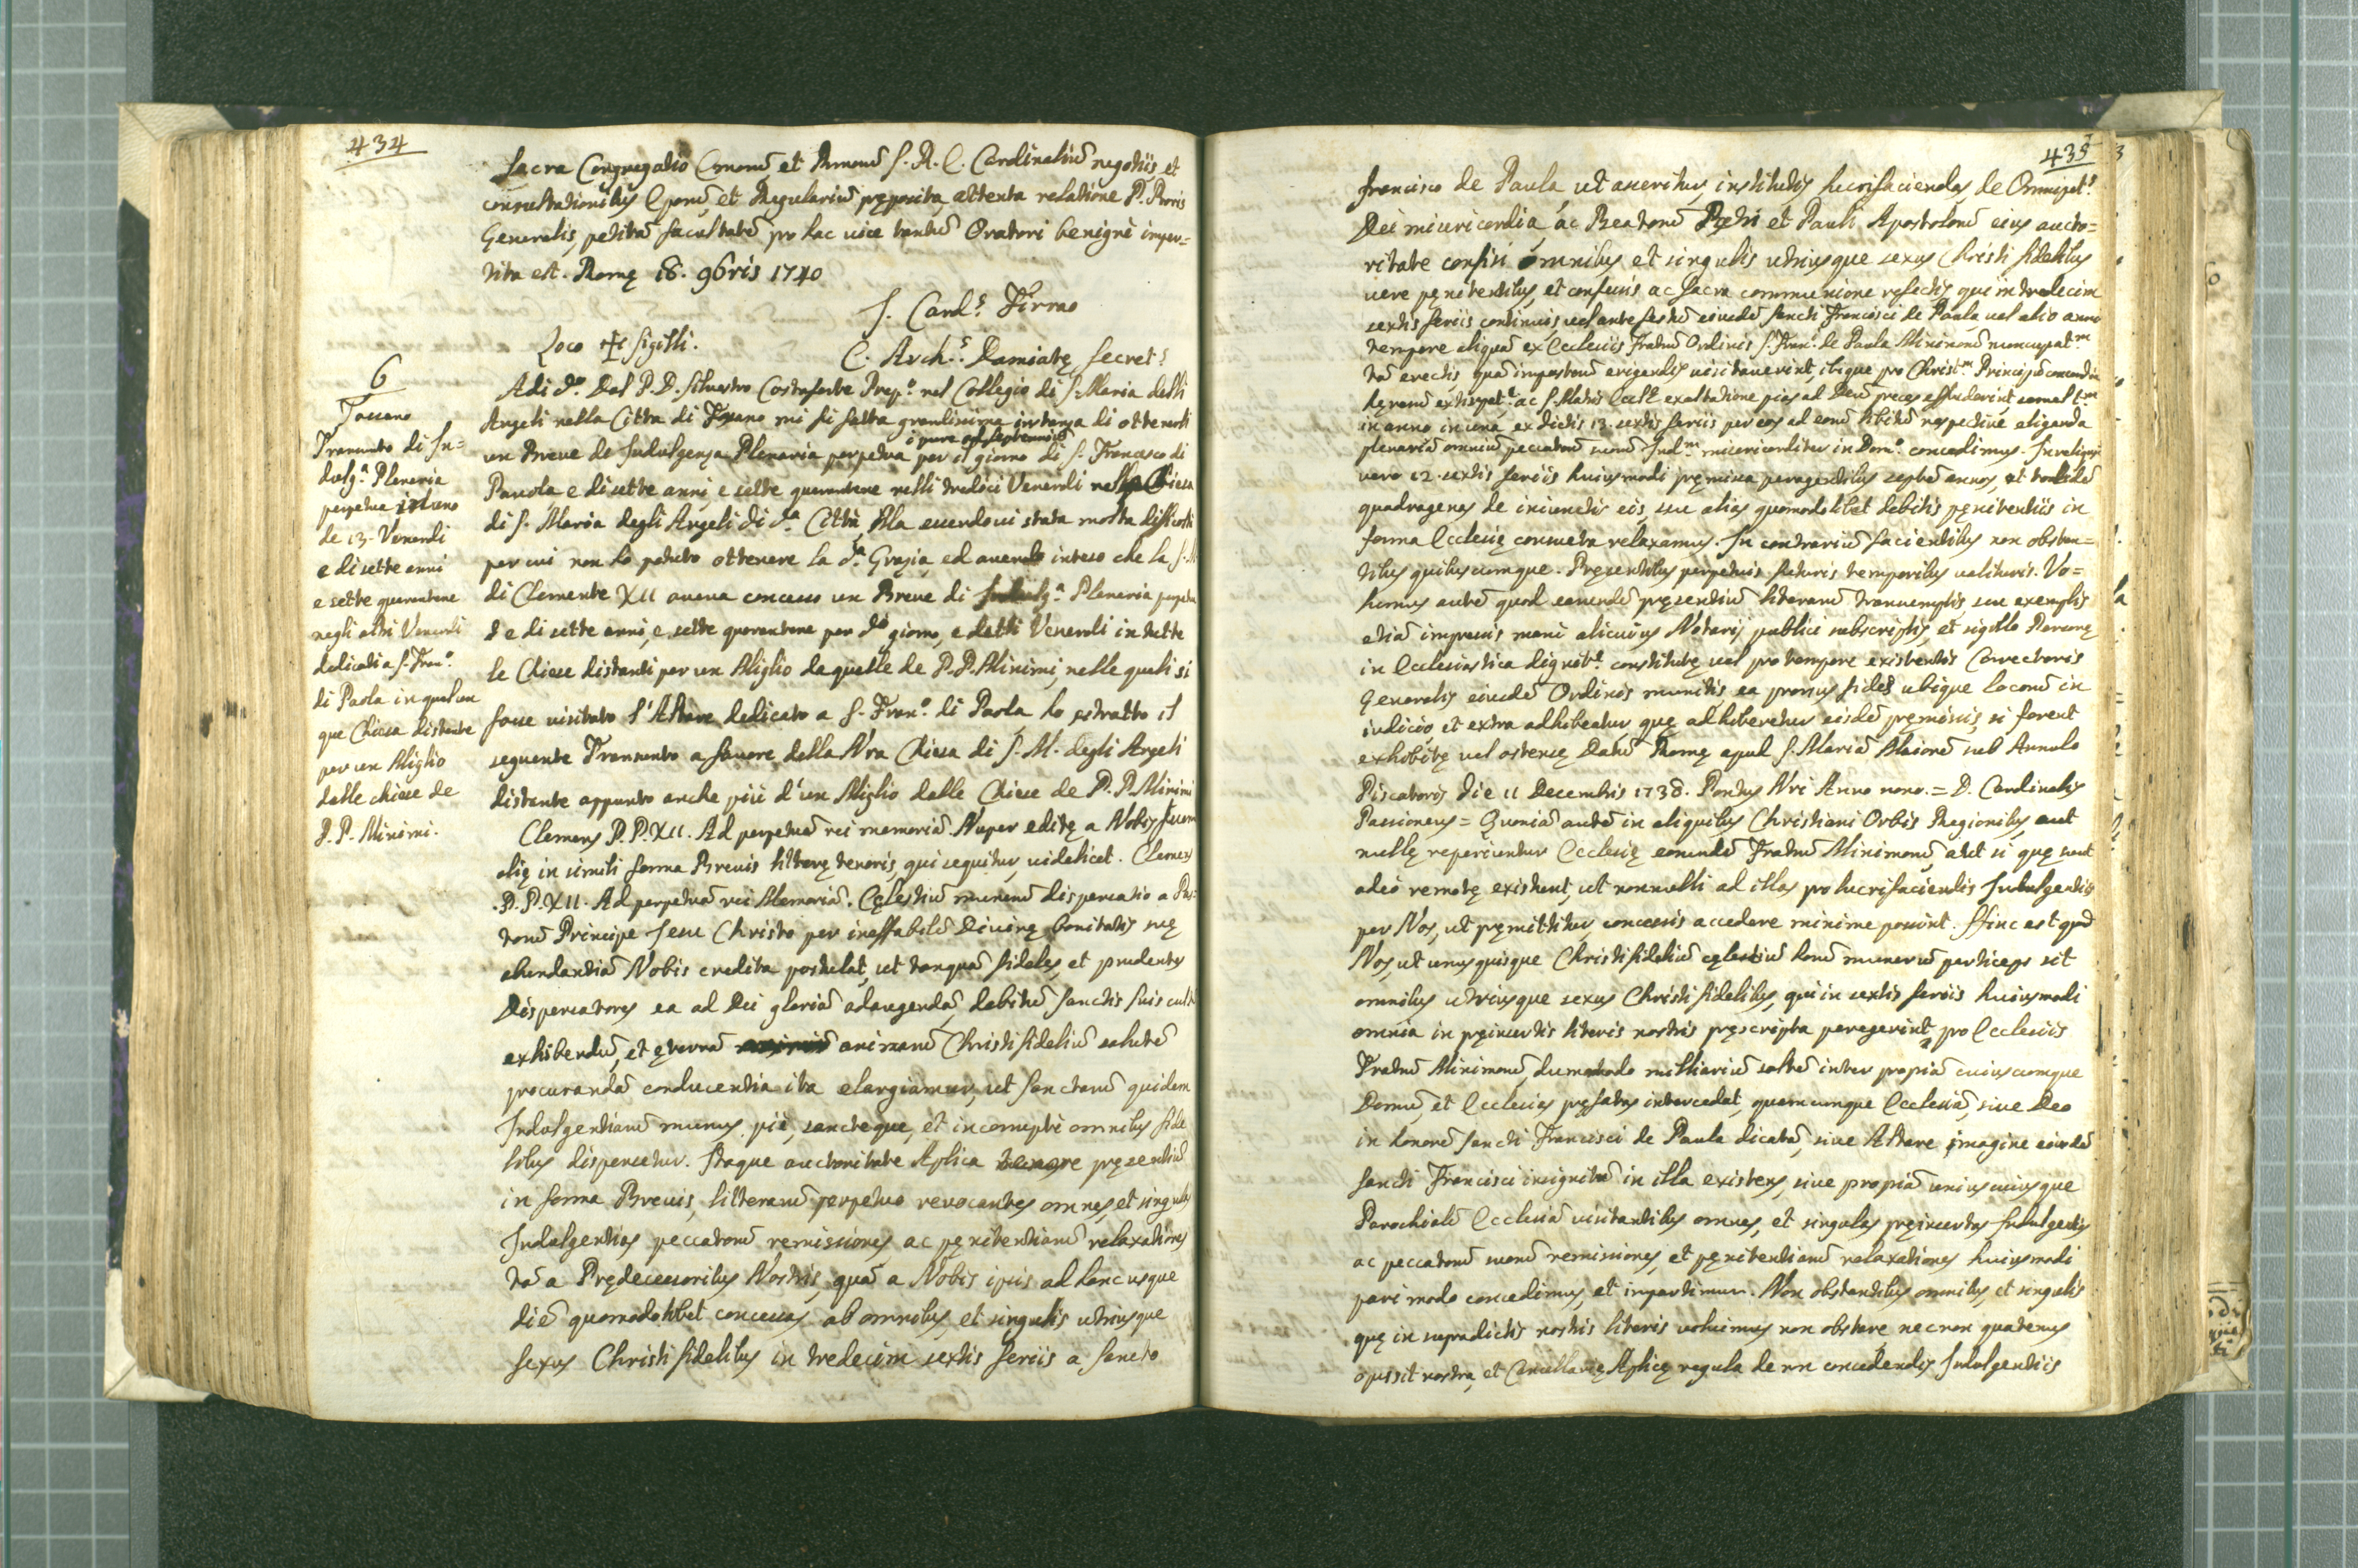 434
Sacra Congregatio Emorũ, et Rmorũ S. R. E. Cardinaliũ negotiis et
consultationibus Eporũ, et Regulariũ pręposita, attenta relatione P. Proris
Generalis, petitã facultatẽ pro hac vice tantũ Oratori benignè imper=
tita est. Romę 18. 9bris 1740
S. Card.s Firrao
Loco ✠ Sigilli.
C. Arch.s Damiatę Secret.s
6
Fossano
Transunto di In=
dulg.a Plenaria
perpetua in uno
de 13. Venerdi
e di sette anni
e sette quarantene
negli altri Venerdi
dedicati a S. Fran.o
di Paola in qualun
que Chiesa distante
per un Miglio
dalle chiese de
P. P. Minimi.
Adi d.o Dal P. D. Silvestro Prep.o nel Collegio di S. Maria delli
Angeli nella Citta di Fossano mi fù fatta grandissima instanza di ottenerli
ò pure ad septennium
un Breve de Indulgenza Plenaria perpetua per il giorno di S. Francesco di
Pauola e di sette anni e sette quarantene nelli tredici Venerdi nella Chiesa
di S. Maria degli Angeli di d.a Città, Ma essendoui stata molta difficoltà
per cui non hò potuto ottenere la d.a Grazia, ed avendo inteso che la S. M.
di Clemente XII aveva concesso un Breve di Indulg.a Plenaria perpetua
e di sette anni, e sette quarantene per d.o giorno, e detti Venerdi in tutte
le Chiese distanti per un Miglio da quelle de P. P. Minimi, nelle quali si
fosse visitato l'Altare dedicato a S. Fran.o di Paola ho estratto il
seguente Transunto a favore della Nra Chiesa di S. M. degli Angeli
distante appunto anche più d'un Miglio dalle Chiese de P. P. Minimi
Clemens P. P. XII. Ad perpetuã rei memoriã. Nuper editę a Nobis fuerunt
alię in simili forma Brevis litterę tenoris, qui sequitur, videlicet. Clemens
P. P. XII. Ad perpetuã rei Memoriã. Cęlestiũ munerũ dispensatio a Pas=
torũ Principe Jesu Christo per ineffabilẽ Divinę bonitatis suę
abundantiã Nobis credita postulat, ut tanquã fideles, et prudentes
Dispensatores ea ad Dei gloriã adaugendã, debitũ Sanctis suis cultũ
exhibendũ, et ęternã animarũ Christifideliũ salutẽ
procurandã conducentia ita elargiamur, ut Sanctarũ quidem
Indulgentiarũ munus piè, sancteque, et incorruptè omnibus fide
libus dispensetur. Itaque auctoritate Aplica tenore pręsentiũ
in forma Brevis, litterarũ perpetuo revocantes omnes, et singulas
Indulgentias peccatorũ remissiones, ac pęnitentiarũ relaxationes
tã a Prędecessoribus Nostris, quã a Nobis ipsis ad hanc usque
diẽ quomodolibet concessas, ab omnibus, et singulis utriusque
sexus Christifidelibus in tredecim sextis feriis a Sancto
435
Francisco de Paula, ut asseritur, institutis lucrifaciendas, de Omnipot.s
Dei misericordia, ac Beatorũ Petri et Pauli Apostolorũ eius aucto=
ritate confisi omnibus et singulis utriusque sexus Christifidelibus
vere pęnitentibus, et confessis ac Sacra communione refectis, qui in tredecim
sextis feriis continuis vel ante festũ eiusdẽ Sancti Francisci de Paula, vel alio anni
tempore aliquã ex Ecclesiis Fratrũ Ordinis S. Fran.ci de Paula Minimorũ nuncupat.m
tã erectis quã imposterũ erigendis visitaverint, ibique pro Christ.m Principũ concordia
hęresũ extirpat.e ac S. Matris Eccłę exaltatione pias ad Deũ preces effuderint, semel t.m
in anno in una ex dictis 13. sextis feriis per eos ad eorũ libitũ respective eligenda
plenariã omniũ peccatorũ suorũ Ind.m misericorditer in Dom.o concedimus. In reliquis
vero 12. sextis feriis huiusmodi pręmissa peragentibus septẽ annos, et totidẽ
quadragenas de iniunctis eis, seu alias quomodolibet debitis pęnitentiis in
forma Ecclesię consueta relaxamus. In contrariũ facientibus non obstan=
tibus quibuscumque. Pręsentibus perpetuis futuris temporibus valituris. Vo=
lumus autẽ quod earundẽ pręsentiũ literarũ transumptis, seu exemplis
etiã impressis manu alicuius Notarij publici subscriptis, et sigillo Personę
in Ecclesiastica dignit.e constitutę vel pro tempore existentis Correctoris
Generalis eiusdẽ Ordinis munitis ea prorsus fides ubique locorũ in
iudicio, et extra adhibeatur, quę adhiberetur eisdẽ pręmissis, si forent
exhibitę vel ostensę Datũ Romę apud S. Mariã Maiorẽ sub Annulo
Piscatoris die 11 Decembris 1738. Pontus Nri Anno nono. = D. Cardinalis
Passioneus = Quoniã autẽ in aliquibus Christiani Orbis Regionibus, aut
nullę reperiuntur Ecclesię eorundẽ Fratrũ Minimorũ, aut si quę sunt
adeò remotę existunt, ut nonnulli ad illas pro lucrifaciendis Indulgentiis
per Nos, ut pręmittitur, concessis accedere minime possint. Hinc est qđ
Nos, ut unusquisque Christifideliũ cęlestiũ horũ munerũ particeps sit
omnibus utriusque sexus Christifidelibus, qui in sextis feriis huiusmodi
omnia in pręinsertis literis nostris pręscripta peregerint, pro Ecclesiis
Fratrũ Minimorũ, dummodo milliariũ saltẽ inter propiã cuiuscumque
Domũ, et Ecclesias pręfatas intercedat, quamcumque Ecclesiã, sive Deo
in honorẽ Sancti Francisci de Paula dicatã, sive Altare imagine eiusdẽ
Sancti Francisci insignitũ in illa existens, sive propiã uniuscuiusque
Parochialẽ Ecclesiã visitantibus omnes, et singulas pręinsertas Indulgentias
ac peccatorũ suorũ remissiones, et pęnitentiarũ relaxationes huiusmodi
pari modo concedimus, et impertimur. Non obstantibus omnibus, et singulis
quę in supradictis nostris literis voluimus non obstare necnon quatenus
opus sit nostra, et Cancellarię Aplicę regula de nn concedendis Indulgentiis